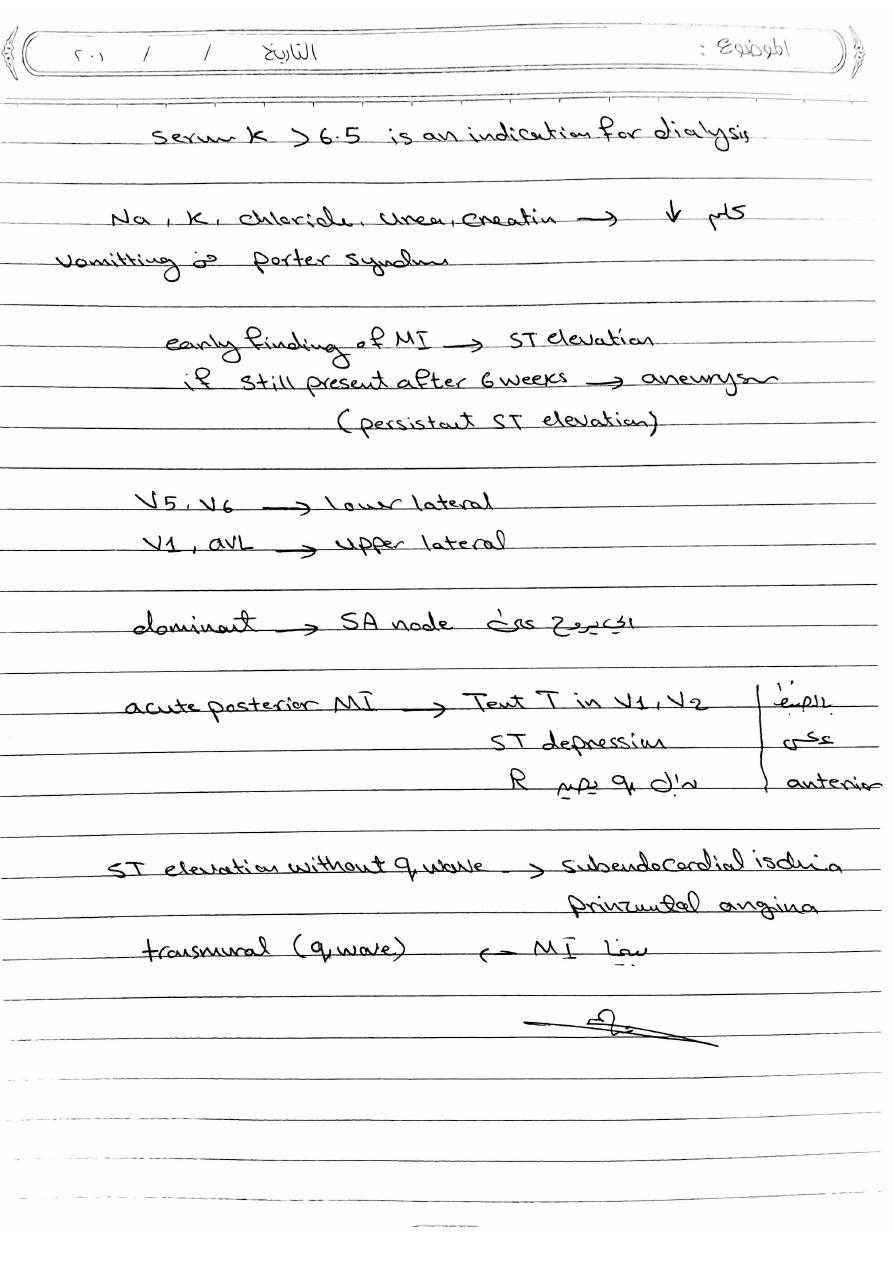 الموضوع :   التاريخ   /   /   ٢٠١
serum K > 6.5 is an indication for dialysis
Na, K, chloride, urea, creatin → ↓ كلهم
vomitting او porter syndrome
early finding of MI → ST elevation
if still present after 6 weeks → aneurysm
(persistant ST elevation)
V5, V6 → lower lateral
V1, aVL → upper lateral
dominant → SA node
acute posterior MI → Tent T in V1, V2
ST depression عكس
R بدل q بصير anterior
ST elevation without q wave → subendocardial
angina
transmural (q wave) ← MI بينما